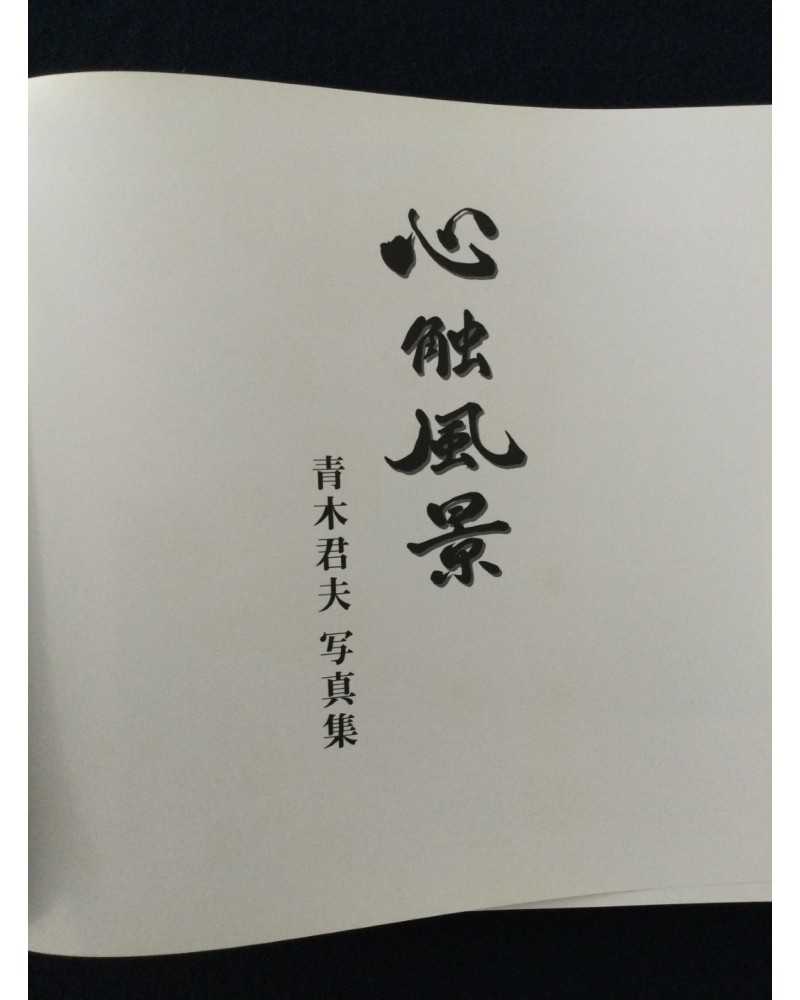 心触風景
青木君夫 写真集